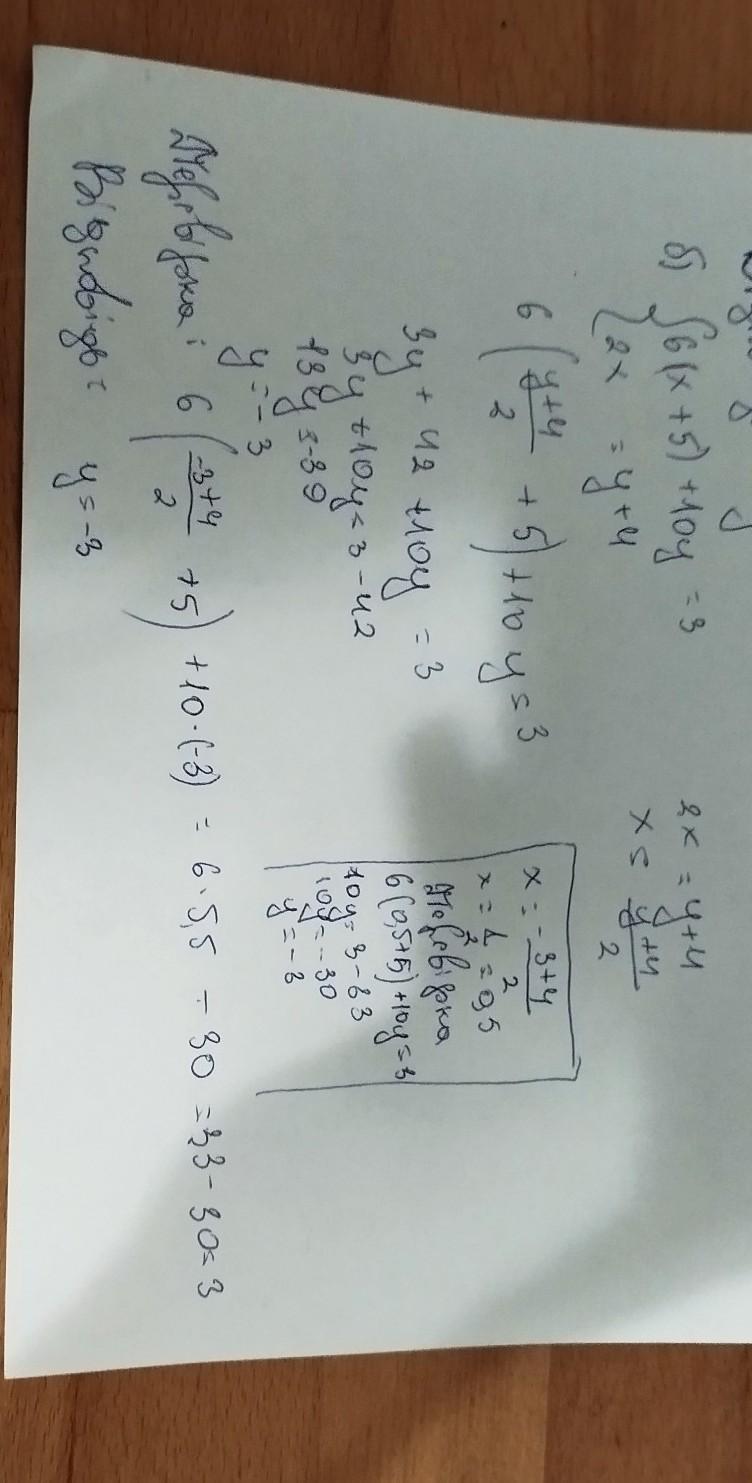 б) { 6(x+5)+10y = 3
2x = y+4
2x = y+4
x = (y+4)/2
6((y+4)/2 + 5)+10y = 3
3y + 42 +10y = 3
3y +10y = 3 - 42
13y = -39
y = -3
x = (-3+4)/2
x = 1/2 = 0,5
Перевірка
6(0,5+5)+10y = 3
10y = 3-33
10y = -30
y = -3
Перевірка: 6((-3+4)/2 +5) + 10·(-3) = 6·5,5 - 30 = 33 - 30 = 3
Відповідь: y = -3